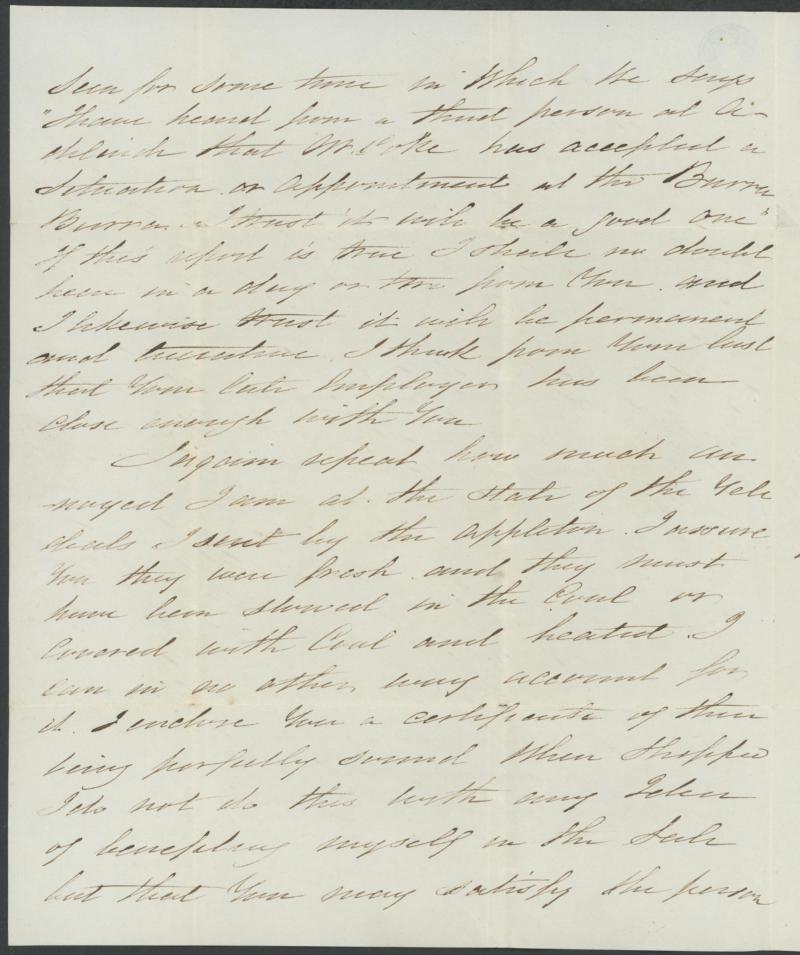 Seen for some time in Which He says
"I have heard from a third person at A-
delaide that Mr. Coke has accepted a
Situation or Appointment at the Burra
Burra. I trust it will be a good one"
If this report is true I shall no doubt
hear in a day or two from You. and
I likewise trust it will be permanent
and lucrative. I think from Your last
that Your late Employer has been
close enough with You
I again repeat how much an-
noyed I am at the state of the
deals I sent by the Appleton. I assure
You they were fresh and they must
have been stowed in the Coal or
Covered with Coal and heated. I
can in no other way account for
it. I enclose You a certificate of their
being perfectly sound When Shipped
I do not do this with any Idea
of benefiting myself in the Sale
but that You may satisfy the person